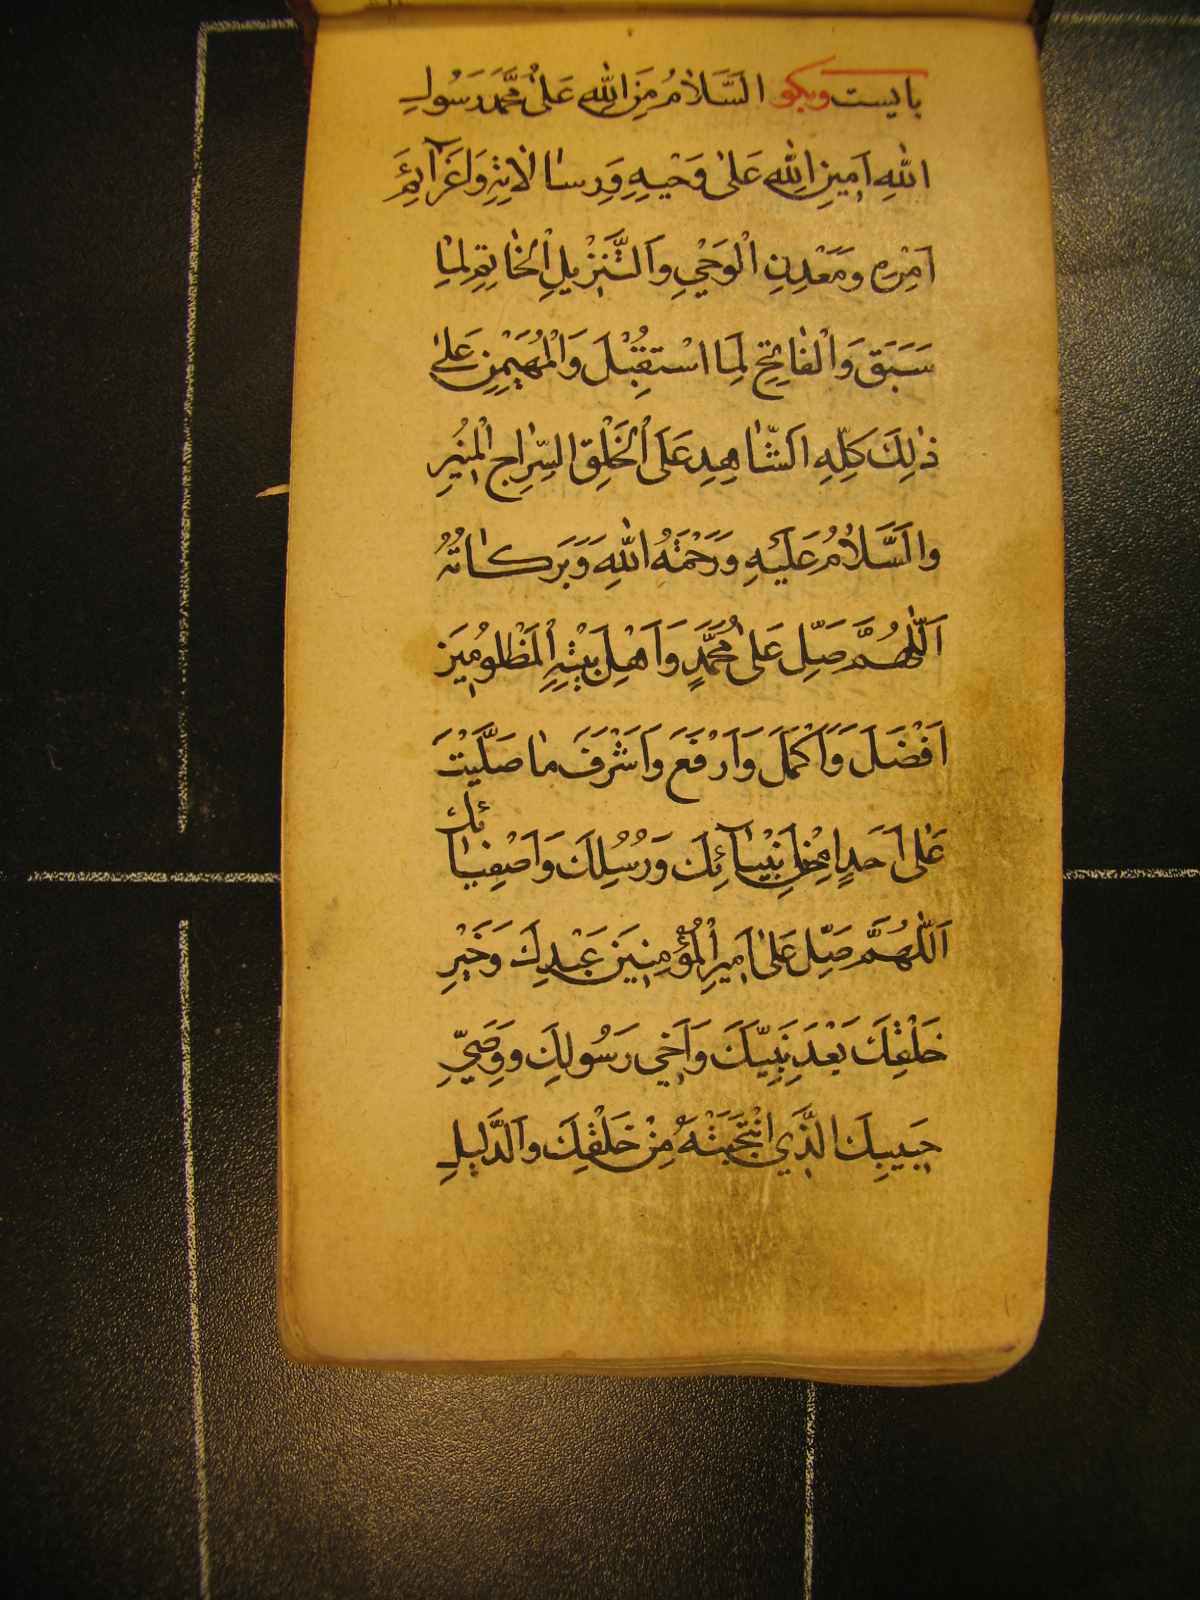 بايست وبكو السَّلامُ مِنَ اللهِ عَلىٰ مُحَمَّدٍ رَسُولِ
اللهِ اَمِينِ اللهِ عَلىٰ وَحْيِهِ وَرِسالاتِهِ وَعَزَآئِمِ
اَمْرِهِ وَمَعْدِنِ الْوَحْيِ وَالتَّنْزِيلِ الْخاتِمِ لِمٰا
سَبَقَ وَالْفاتِحِ لِمَا اسْتُقْبِلَ وَالْمُهَيْمِنِ عَلىٰ
ذٰلِكَ كُلِّهِ اَلشّاهِدِ عَلَى الْخَلْقِ السِّراجِ الْمُنِيرِ
وَالسَّلامُ عَلَيْهِ وَرَحْمَةُ اللهِ وَبَرَكاتُهُ
اَللّٰهُمَّ صَلِّ عَلىٰ مُحَمَّدٍ وَاَهْلِ بَيْتِهِ الْمَظْلُومِينَ
اَفْضَلَ وَاَكْمَلَ وَاَرْفَعَ وَاَشْرَفَ ما صَلَّيْتَ
عَلىٰ اَحَدٍ مِنْ اَنْبِيآئِكَ وَرُسُلِكَ وَاَصْفِيآئِكَ
اَللّٰهُمَّ صَلِّ عَلىٰ اَمِيرِ الْمُؤْمِنِينَ عَبْدِكَ وَخَيْرِ
خَلْقِكَ بَعْدَ نَبِيِّكَ وَاَخِي رَسُولِكَ وَوَصِيِّ
حَبِيبِكَ الَّذِي انْتَجَبْتَهُ مِنْ خَلْقِكَ وَالدَّلِيلِ